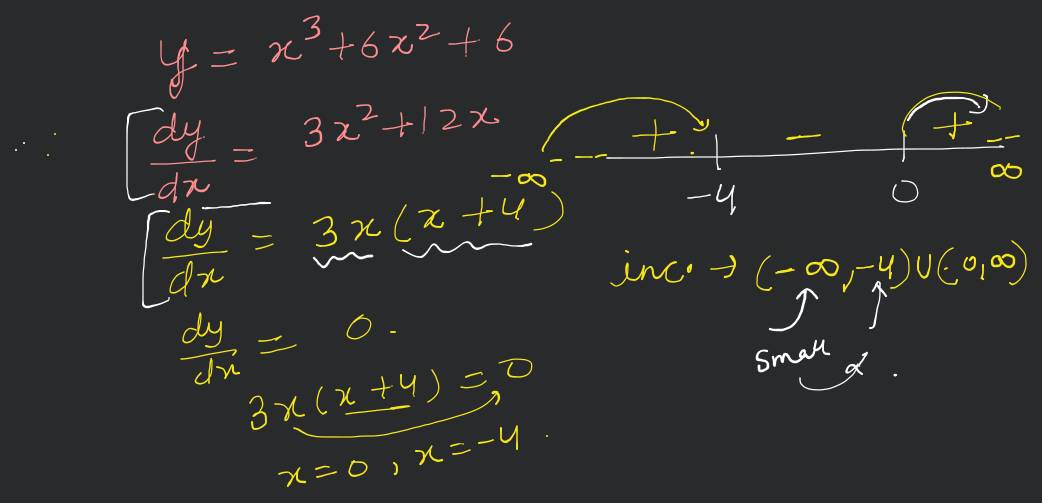 y = x³ + 6x² + 6
∴ dy/dx = 3x² + 12x
dy/dx = 3x (x + 4)
dy/dx = 0.
3x (x + 4) = 0
x = 0, x = -4.
+ - +
-∞ -4 0 ∞
inc. → (-∞, -4) ∪ (0, ∞)
Small